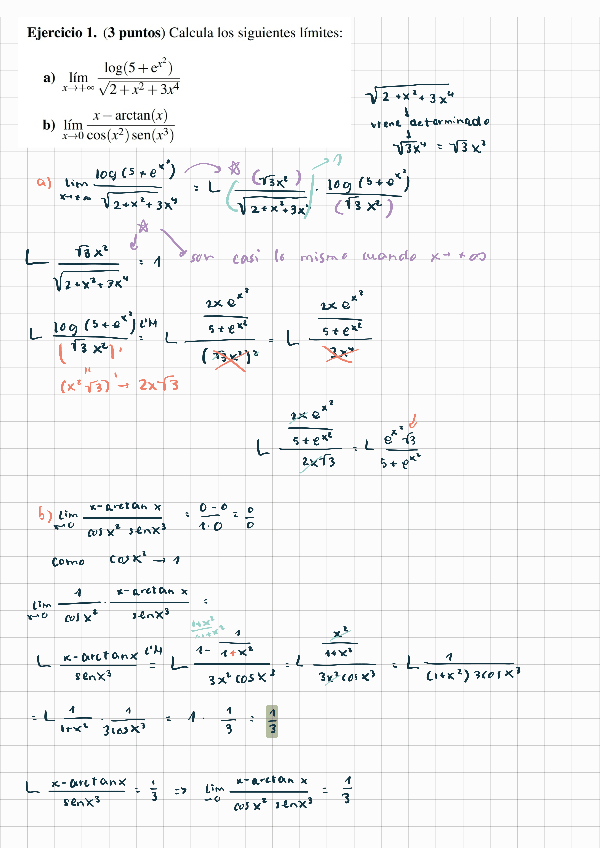 Ejercicio 1. (3 puntos) Calcula los siguientes límites:
a) lím x→+∞ log(5+e^{x^2}) / √(2+x^2+3x^4)
b) lím x→0 (x−arctan(x)) / (cos(x^2) sen(x^3))
√(2+x^2+3x^4)
viene determinado
√3x^4 = √3 x^2
a) lim x→+∞ log(5+e^{x^2}) / √(2+x^2+3x^4) = L (√3x^2) / √(2+x^2+3x^4) · log(5+e^{x^2}) / (√3 x^2)
1
L √3x^2 / √(2+x^2+3x^4) = 1 son casi lo mismo cuando x→+∞
L log(5+e^{x^2}) / (√3 x^2)' L'H = L (2xe^{x^2} / (5+e^{x^2})) / (√3x^2)^2 = L (2xe^{x^2} / (5+e^{x^2})) / 3x^4
(x^2 √3)' → 2x√3
L (2xe^{x^2} / (5+e^{x^2})) / 2x√3 = L e^{x^2} √3 / (5+e^{x^2})
b) lim x→0 (x-arctan x) / (cos x^2 sen x^3) = (0-0) / (1·0) = 0/0
como cos x^2 → 1
lim x→0 1 / cos x^2 · (x-arctan x) / sen x^3 =
(1+x^2) / (1+x^2)
L (x-arctan x) / sen x^3 L'H = L (1 - 1/(1+x^2)) / (3x^2 cos x^3) = L (x^2 / (1+x^2)) / (3x^2 cos x^3) = L 1 / ((1+x^2) 3cos x^3)
= L 1/(1+x^2) · 1/(3cos x^3) = 1 · 1/3 = 1/3
L (x-arctan x) / sen x^3 = 1/3 => lim →0 (x-arctan x) / (cos x^2 sen x^3) = 1/3